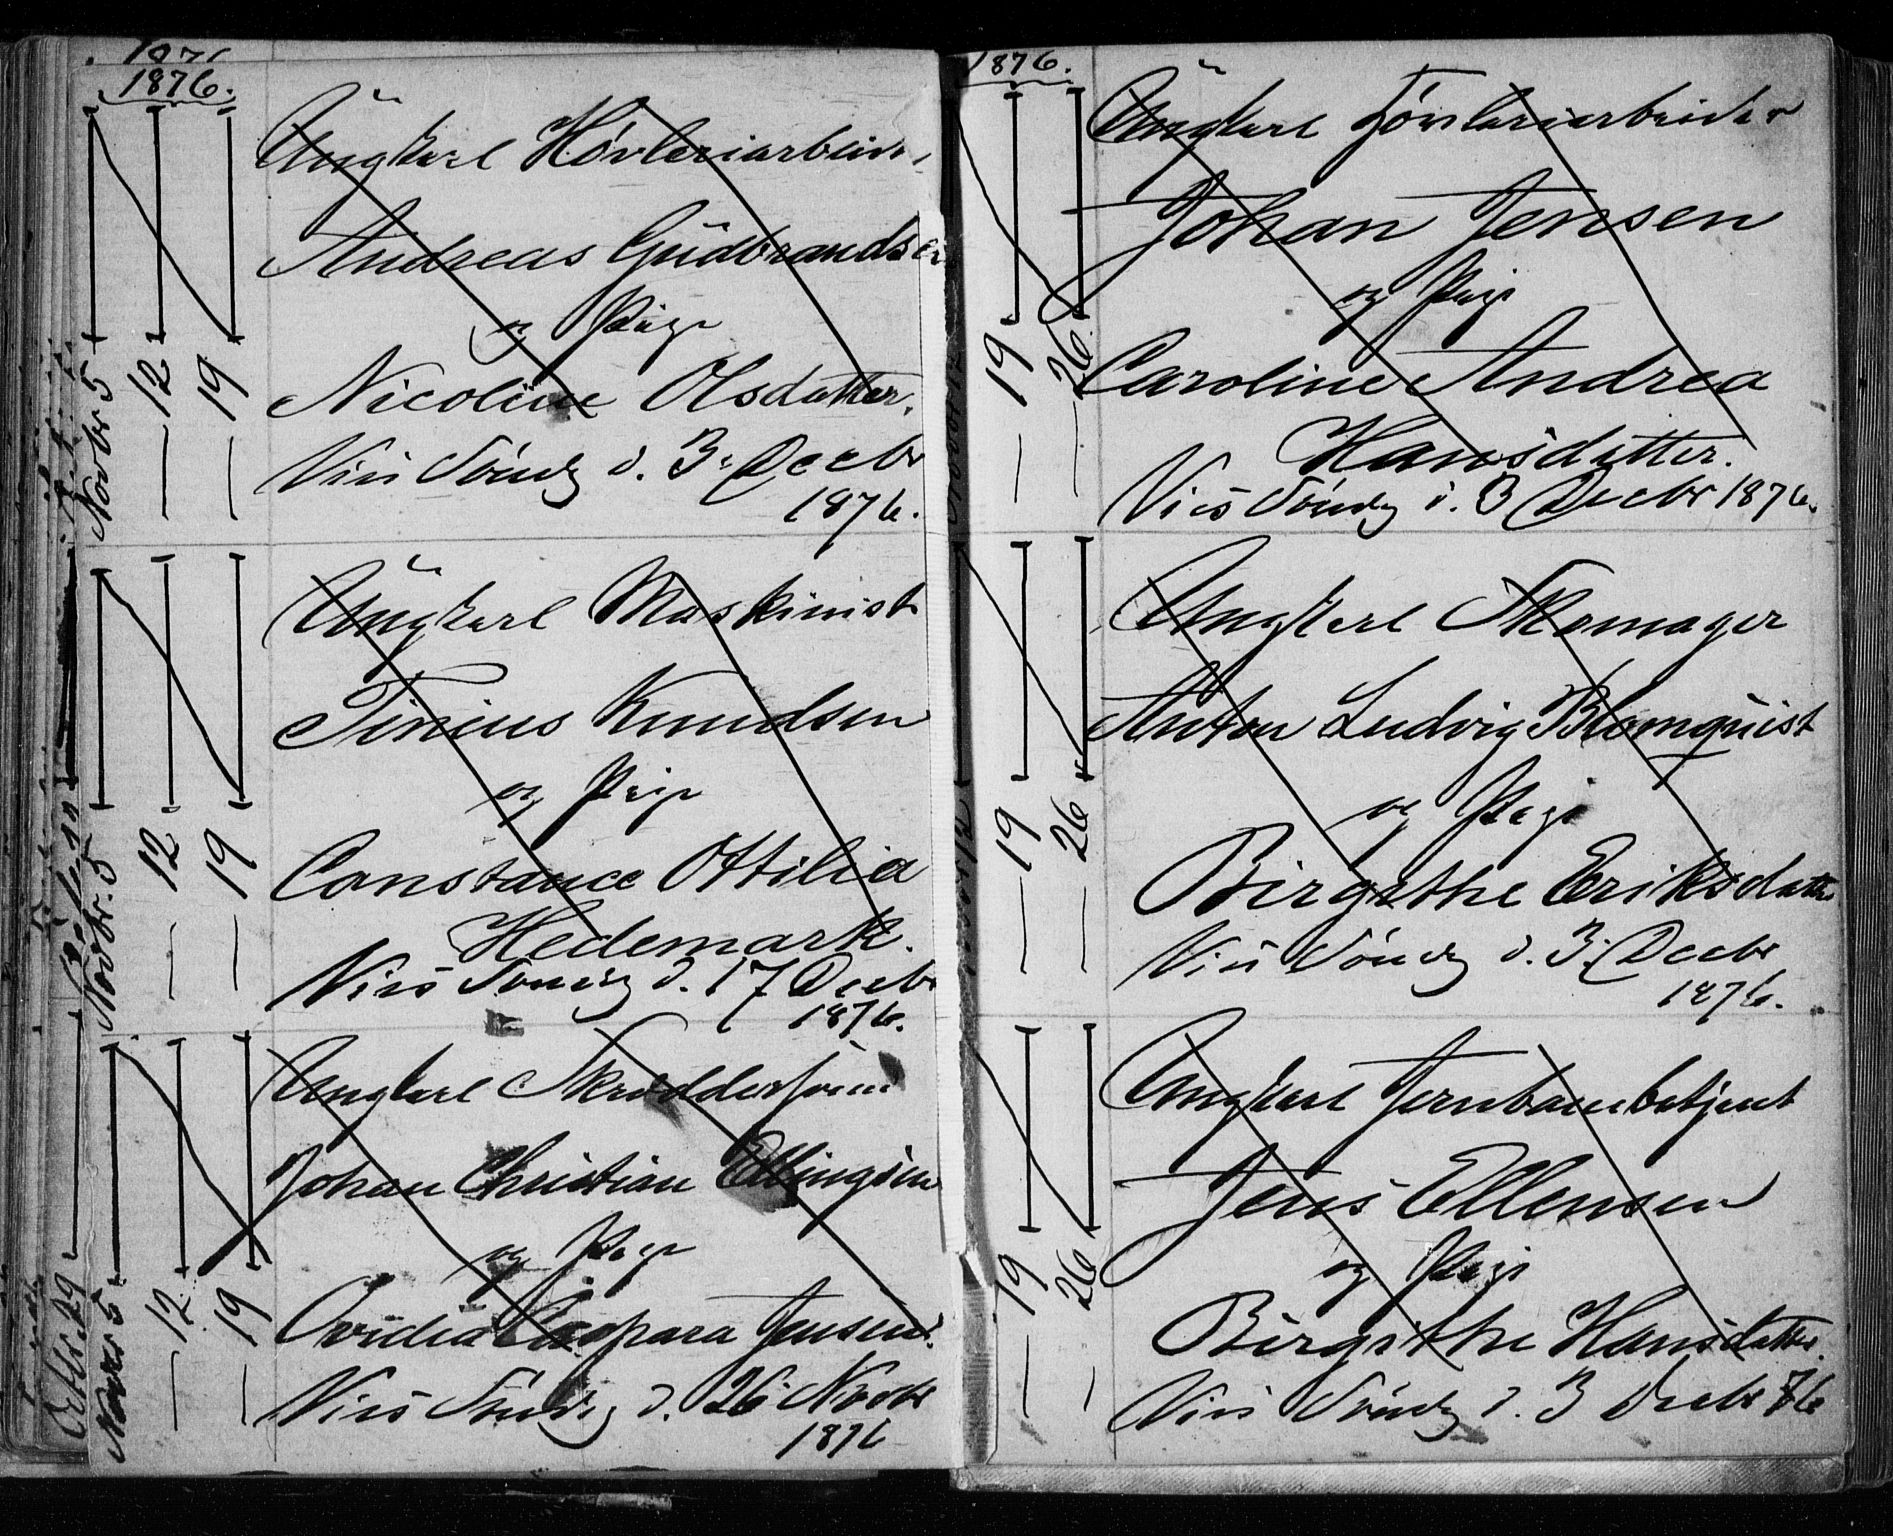 1876.
Novbr 5 — 12 — 19 —
Ungkarl Høvleriarbeider
Andreas Gudbrandsen
og Pige
Nicoline Olsdatter.
Vies Søndag d. 3. Decbr
1876.
Novbr. 5 12 — 19 —
Ungkarl Maskinist
Tinius Knudsen
og Pige
Constance Ottilia
Hedemark.
Vies Søndag d. 17 Decbr
1876.
Novbr 5 — 12 — 19 —
Ungkarl Skræddersvend
Johan Christian Ellingsen
og Pige
Ovidia Caspara Jensen.
Vies Søndag d. 26 Novbr
1876
Octbr. 29
1876.
19 — 26 —
Ungkarl Høvleriarbeider
Johan Jensen
og Pige
Caroline Andrea
Hansdatter.
Vies Søndag d. 3 Decbr 1876.
19 — 26 —
Ungkarl Skomager
Anton Ludvig Blomquist
og Pige
Birgithe Eriksdatter
Vies Søndag d. 3. Decbr
1876.
19 — 26 —
Ungkarl Jernbanebetjent
Jens Ellensen
og Pige
Birgithe Hansdatter.
Vies Søndag d. 3 Decbr 76